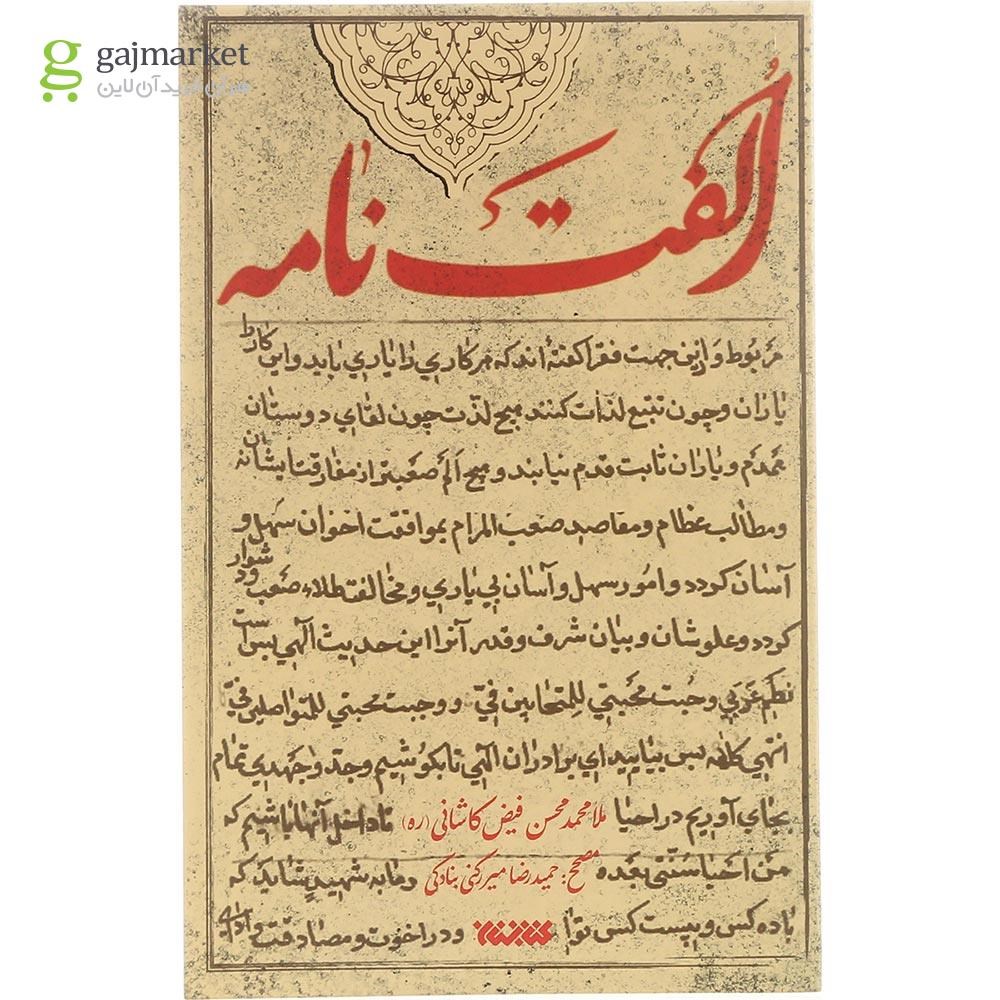 gajmarket
هزاران خرید آن لاین
الفت نامه
مربوط و ازین جهت فقرا کفته اند که هر کاري را یاري باید و این کار را
یاران و چون تتبع لذات کنند هیچ لذت چون لقاي دوستان
همدم و یاران ثابت قدم نیابند و هیچ الم صعبتر از مفارقت ایشان نه
و مطالب عظام و مقاصد صعب المرام بموافقت اخوان سهل و
آسان کردد و امور سهل و آسان بي یاري و مخالفت صعب و دشوار
کردد و علو شان و بیان شرف و قدر آنرا این حدیث الهي بس است
وجبت محبتي للمتحابین في و وجبت محبتي للمتواصلین في
انتهي کلامه پس بیایید اي برادران الهي تا بکوشیم و جد و جهدي تمام
بجاي آوریم در احیا ملا محمد محسن فیض کاشانی (ره) تا داخل آنها باشیم که
من احیا سنتي بعد مصحح: حمیدرضا میررکنی بنادکی و ما به شهید شاید که
باده کس و بیست کس توا کتابستان و در اخوت و مصادقت